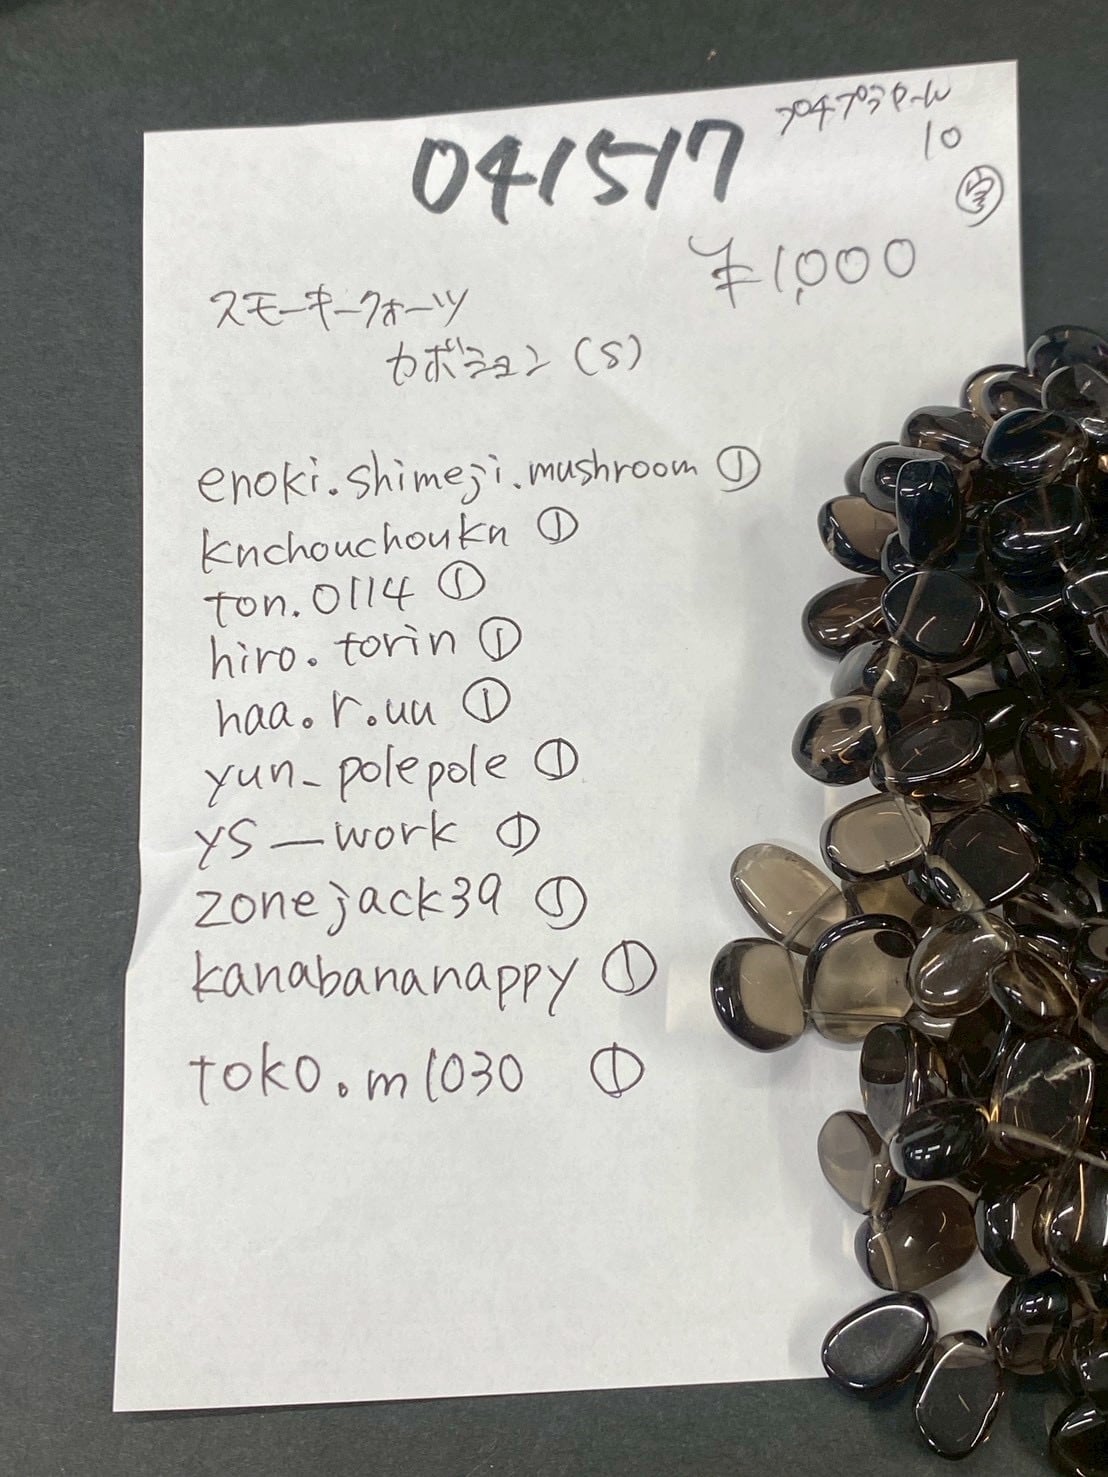 041517
10
¥1,000
スモーキークォーツ
カボション(S)
enoki.shimeji.mushroom ①
knchouchoukn ①
ton.0114 ①
hiro.torin ①
haa.r.uu ①
yun_polepole ①
ys_work ①
zonejack39 ①
kanabananappy ①
toko.m1030 ①